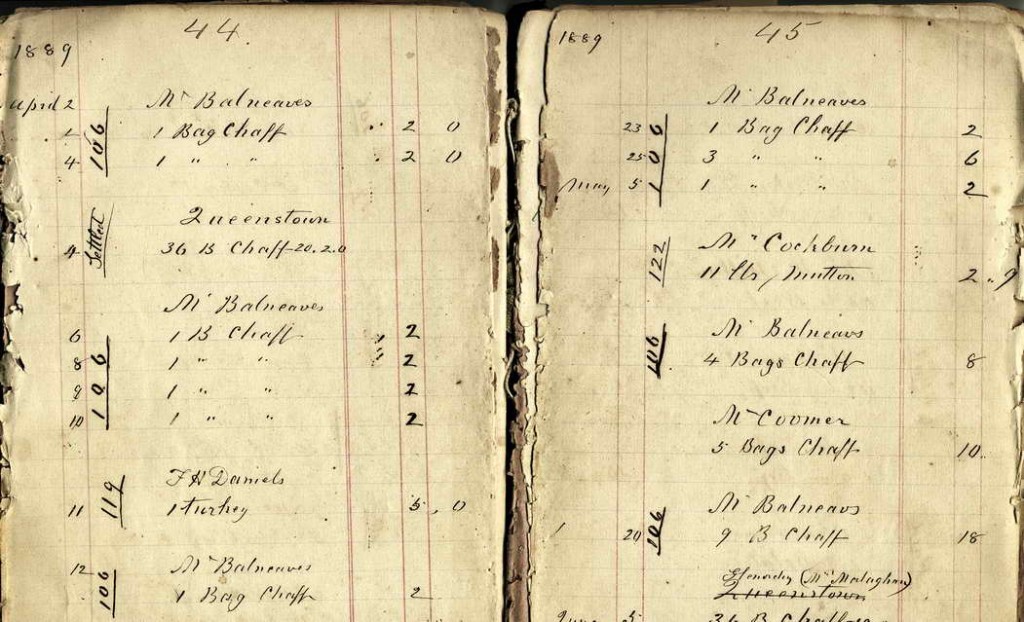 44
1889
April 2 Mr Balneaves
2 1 Bag Chaff 2 0
106
4 1 " " 2 0
Queenstown
Settled
4 36 B Chaff 20.2.0
Mr Balneaves
6 1 B Chaff 2
8 1 " " 2
106
9 1 " " 2
10 1 " " 2
F H Daniels
119
11 1 turkey 5, 0
12 Mr Balneaves
106
1 Bag Chaff 2
45
1889
Mr Balneaves
23 1 Bag Chaff 2
106
25 3 " " 6
May 5 1 " " 2
Mr Cockburn
122
11 lbs Mutton 2 " 9
Mr Balneavs
106
4 Bags Chaff 8
Mr Coomer
5 Bags Chaff 10
Mr Balneavs
106
1 20 9 B Chaff 18
(Mr Malaghan)
Queenstown
June 5 36 B Chaff